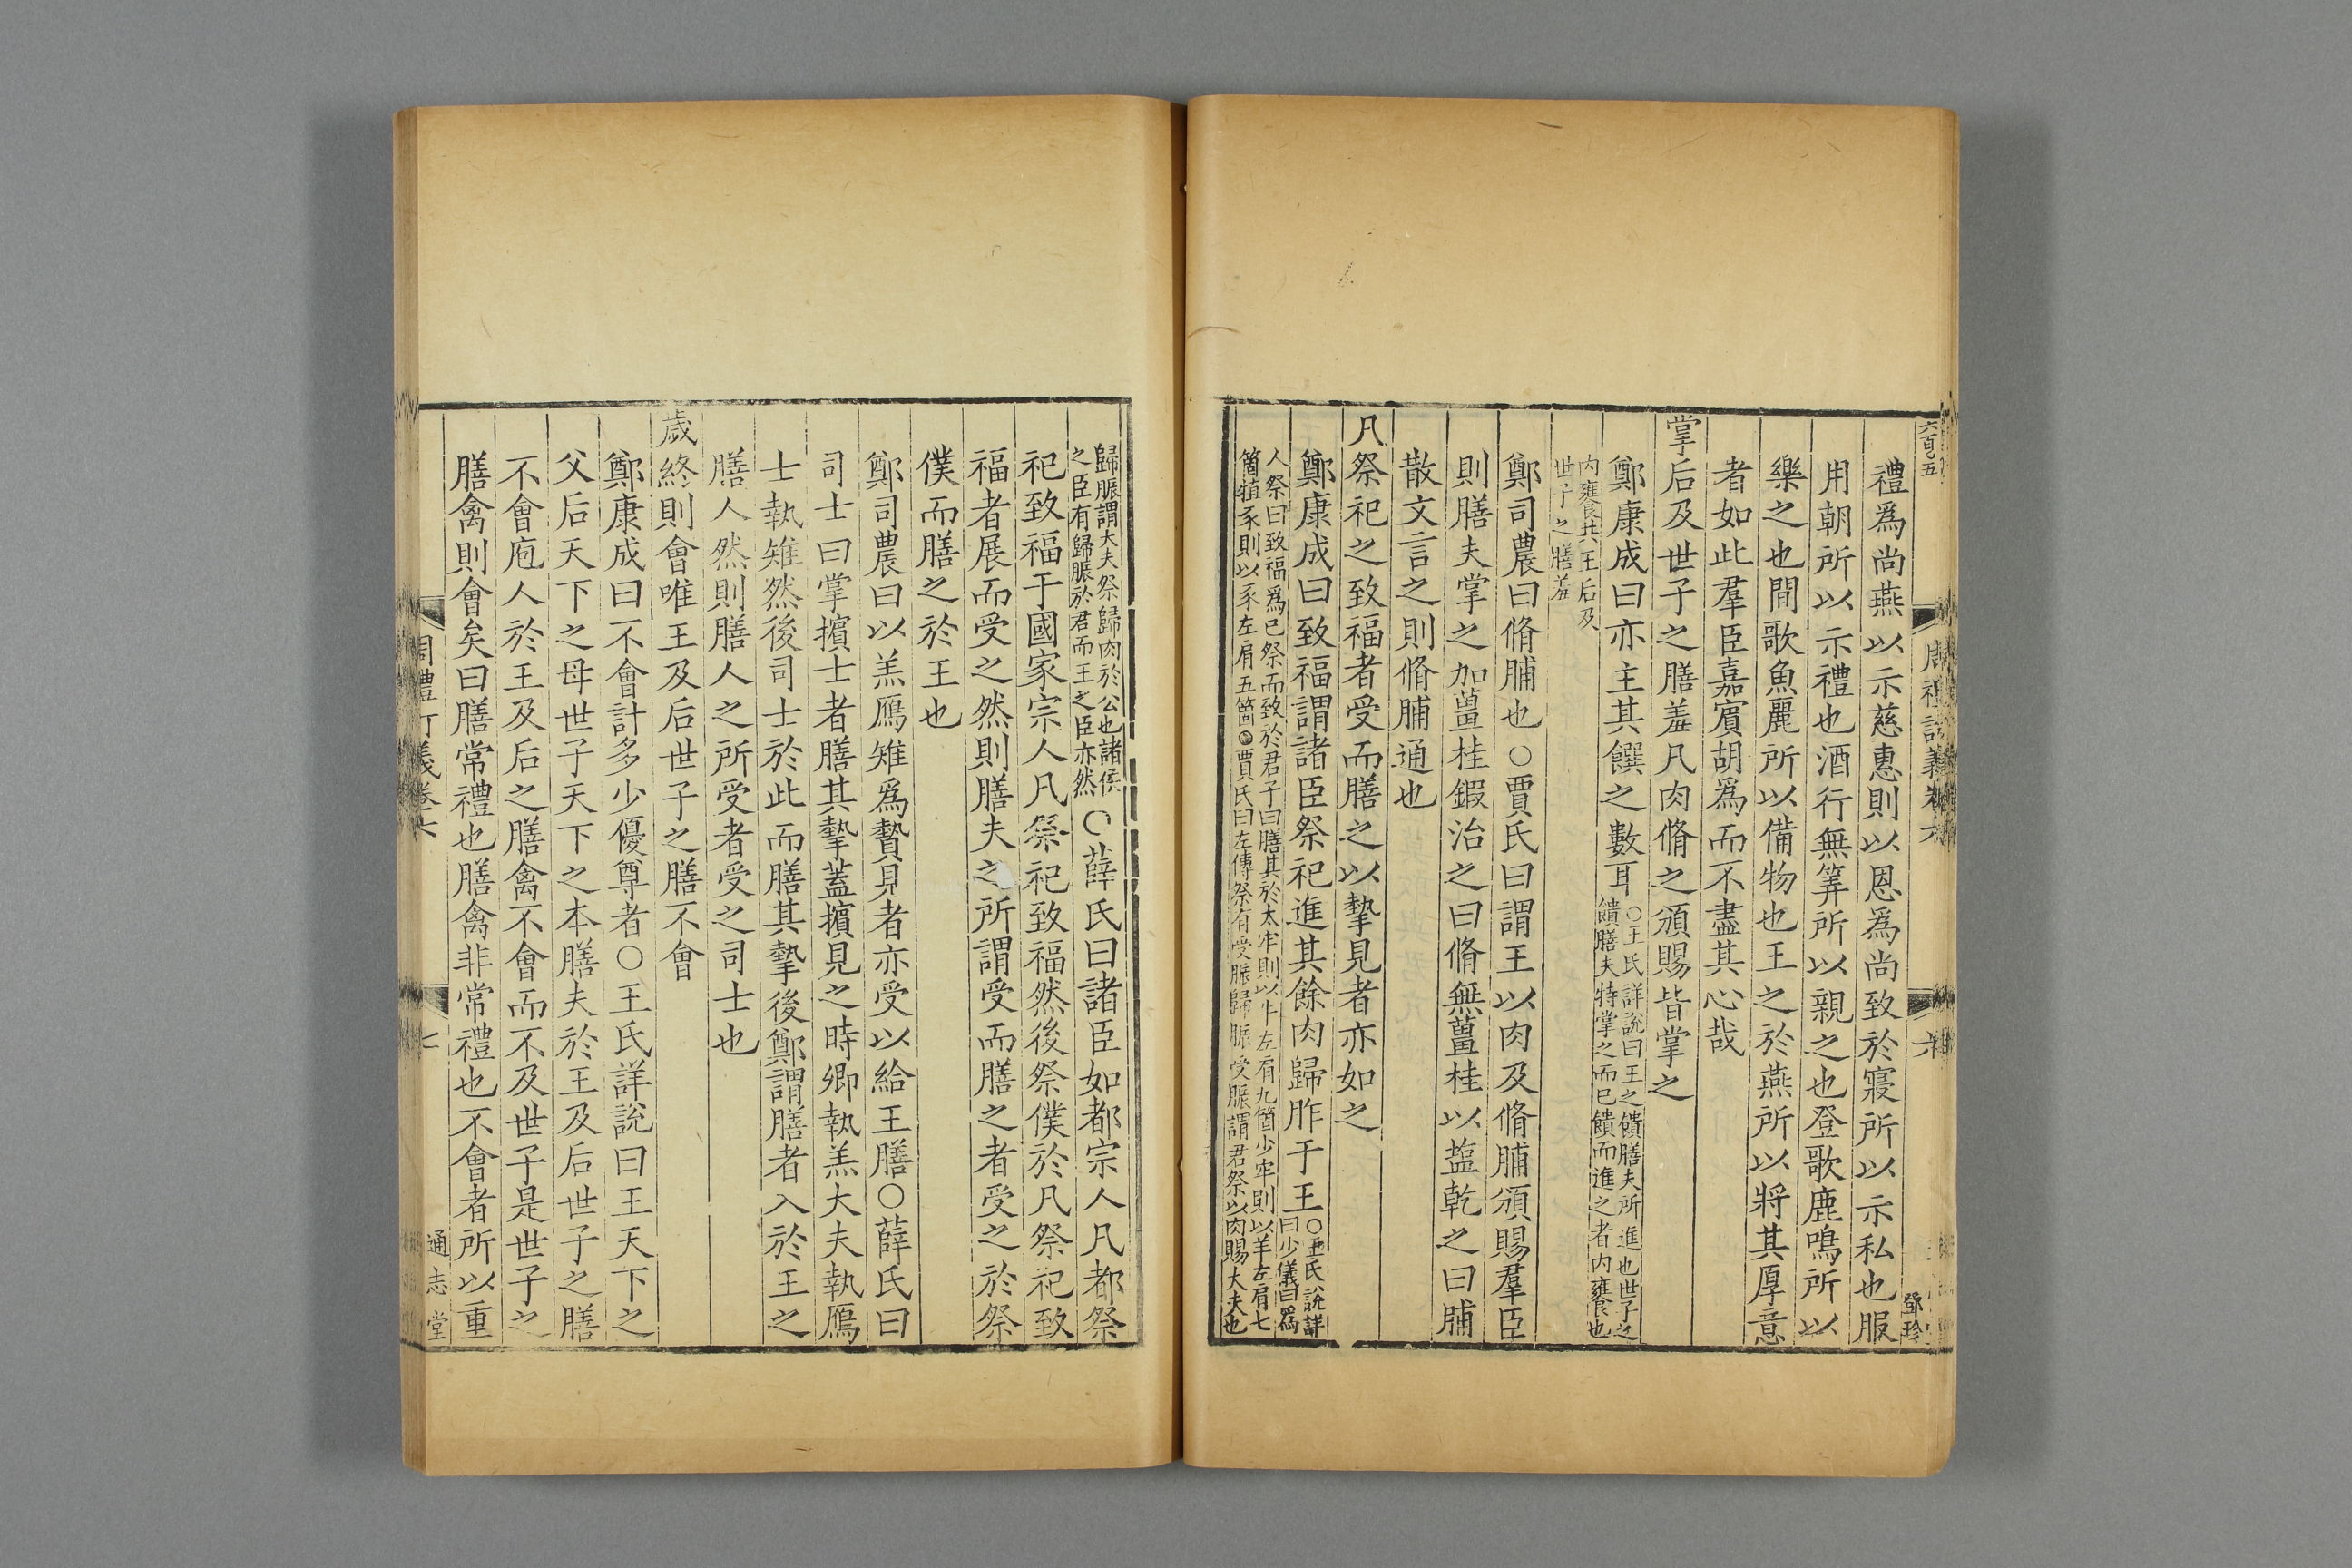 六百五
禮爲尚燕以示慈惠則以恩爲尚致於寢所以示私也服
用朝所以示禮也酒行無筭所以親之也登歌鹿鳴所以
樂之也間歌魚麗所以備物也王之於燕所以將其厚意
者如此羣臣嘉賓胡爲而不盡其心哉
掌后及世子之膳羞凡肉脩之頒賜皆掌之
鄭康成曰亦主其饌之數耳○王氏詳說曰王之饋膳夫所進也世子之
饋膳夫特掌之而已饋而進之者内饔也
内饔共王后及
世子之膳羞
鄭司農曰脩脯也○賈氏曰謂王以肉及脩脯頒賜羣臣
則膳夫掌之加薑桂鍛治之曰脩無薑桂以塩乾之曰脯
散文言之則脩脯通也
凡祭祀之致福者受而膳之以摯見者亦如之
鄭康成曰致福謂諸臣祭祀進其餘肉歸胙于王○王氏詳說
曰少儀曰爲
人祭曰致福爲己祭而致於君子曰膳其於太牢則以牛左肩九箇少牢則以羊左肩七
箇犆豕則以豕左肩五箇○賈氏曰左傳祭有受脤歸脤受脤謂君祭以肉賜大夫也
鄧玲
歸脤謂大夫祭歸肉於公也諸侯
之臣有歸脤於君而王之臣亦然○薛氏曰諸臣如都宗人凡都祭
祀致福于國家宗人凡祭祀致福然後祭僕於凡祭祀致
福者展而受之然則膳夫之所謂受而膳之者受之於祭
僕而膳之於王也
鄭司農曰以羔鴈雉爲贄見者亦受以給王膳○薛氏曰
司士曰掌擯士者膳其摯蓋擯見之時卿執羔大夫執鴈
士執雉然後司士於此而膳其摯後鄭謂膳者入於王之
膳人然則膳人之所受者受之司士也
歲終則會唯王及后世子之膳不會
鄭康成曰不會計多少優尊者○王氏詳說曰王天下之
父后天下之母世子天下之本膳夫於王及后世子之膳
不會庖人於王及后之膳禽不會而不及世子是世子之
膳禽則會矣曰膳常禮也膳禽非常禮也不會者所以重
周禮訂義卷六
七
通志堂